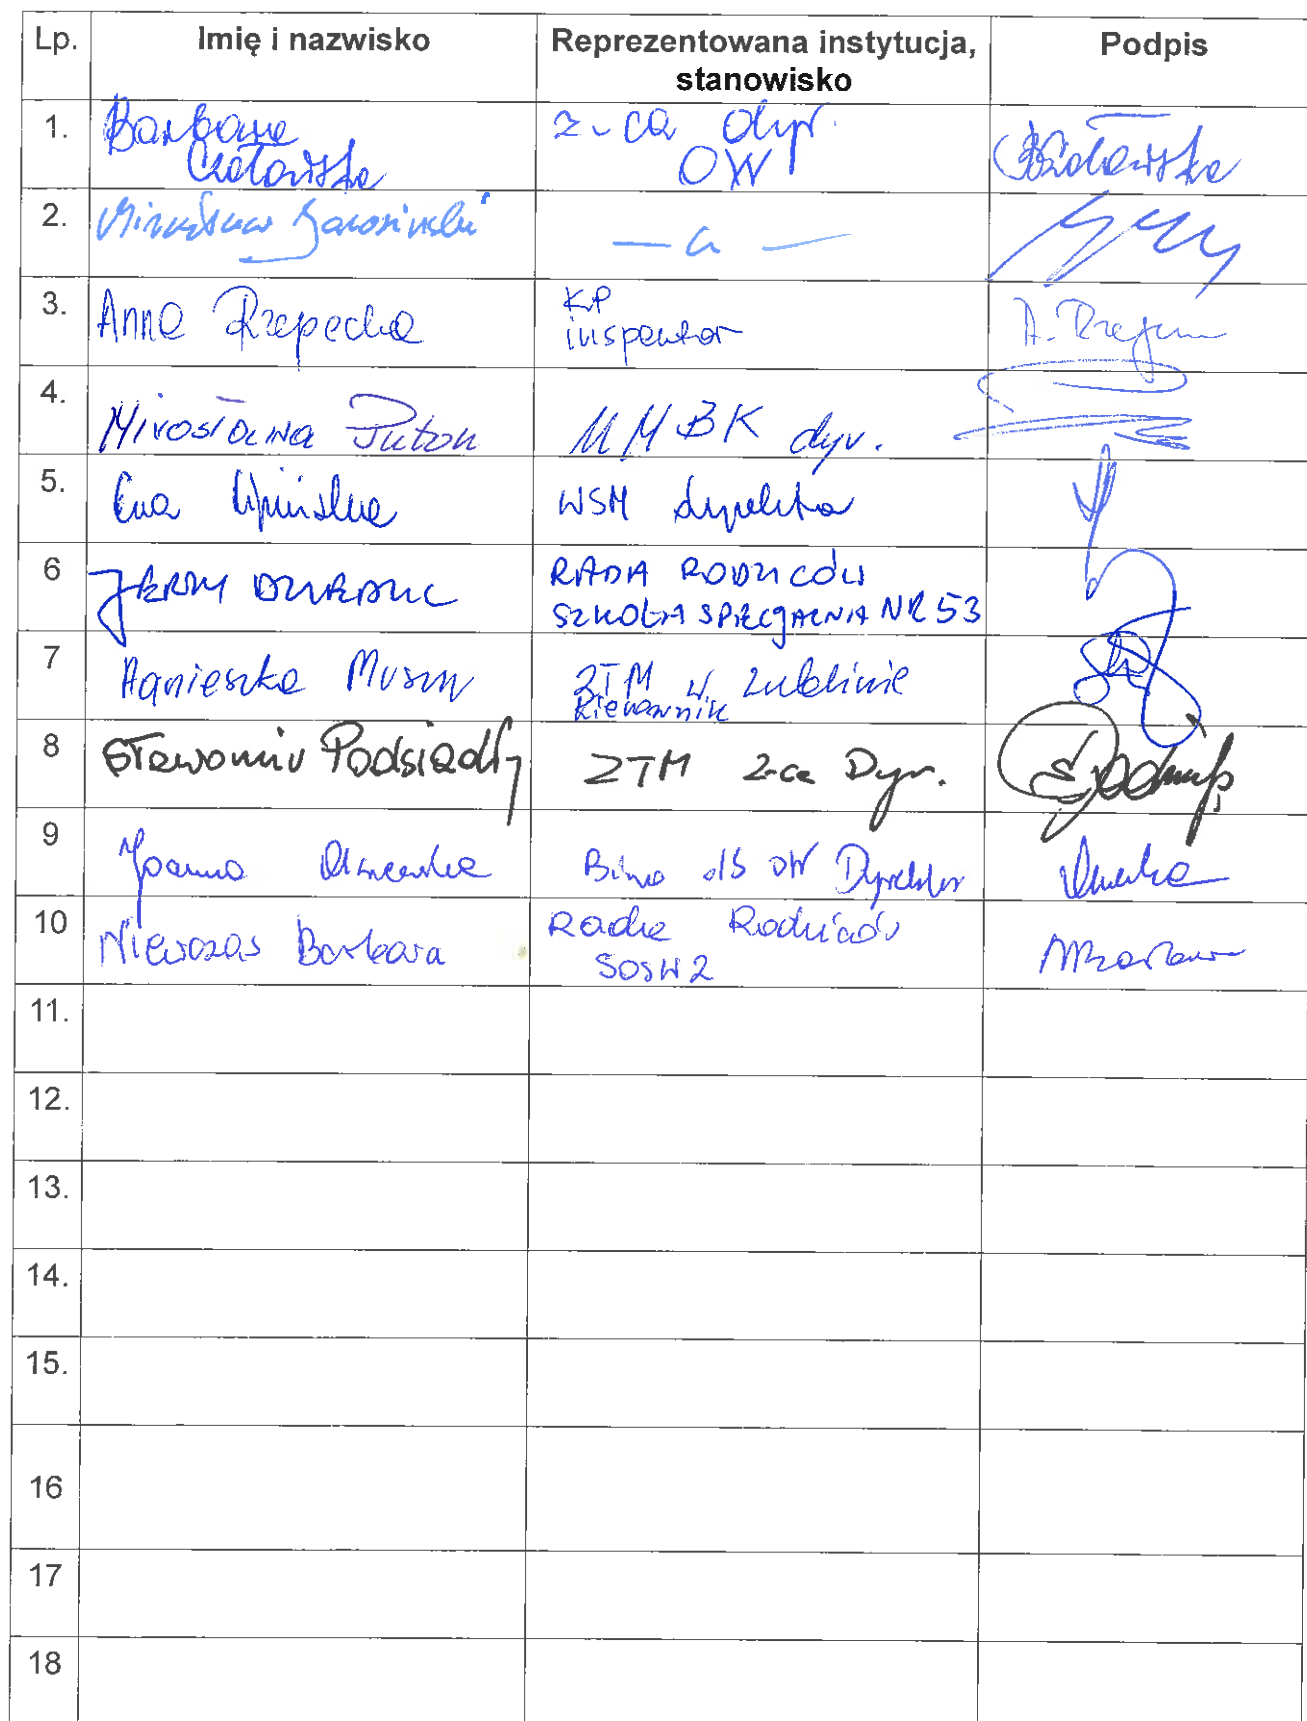 Lp. Imię i nazwisko Reprezentowana instytucja, stanowisko Podpis
1. Barbara Czołowska z-ca dyr. OW
2. Mirosław Jarosiński
3. Anna Rzepecka KP inspektor A.
4. Mirosława Puton MMBK dyr.
5. Ewa WSM dyrektor
6 JERZY RADA RODZICÓW SZKOŁA SPECJALNA NR 53
7 Agnieszka ZTM w Lublinie Kierownik
8 Sławomir Podsiadły ZTM z-ca Dyr.
9 Joanna Olszewska Biuro ds OW Dyrektor
10 Niewczas Barbara Rada Rodziców SOSW 2
11.
12.
13.
14.
15.
16
17
18